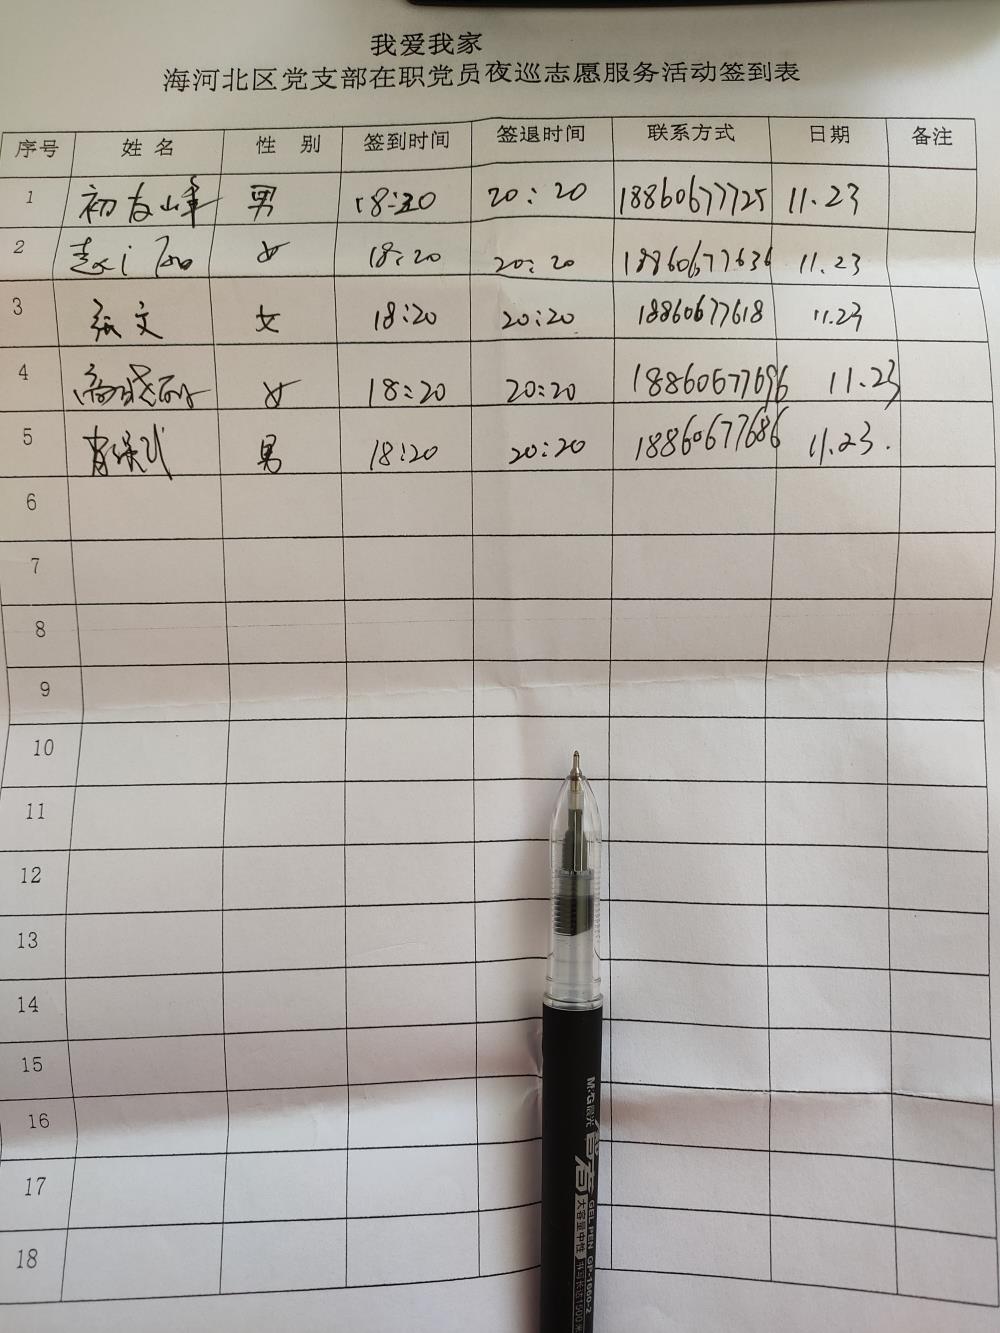 我爱我家
海河北区党支部在职党员夜巡志愿服务活动签到表
序号 姓名 性别 签到时间 签退时间 联系方式 日期 备注
1 初友峰 男 18:20 20:20 18860677725 11.23
2 女 18:20 20:20 18860677636 11.23
3 张文 女 18:20 20:20 18860677618 11.23
4 高晓丽 女 18:20 20:20 18860677696 11.23
5 肖 男 18:20 20:20 18860677686 11.23.
6
7
8
9
10
11
12
13
14
15
16
17
18
M&G晨光
GEL PEN GP-1660-2
大容量中性